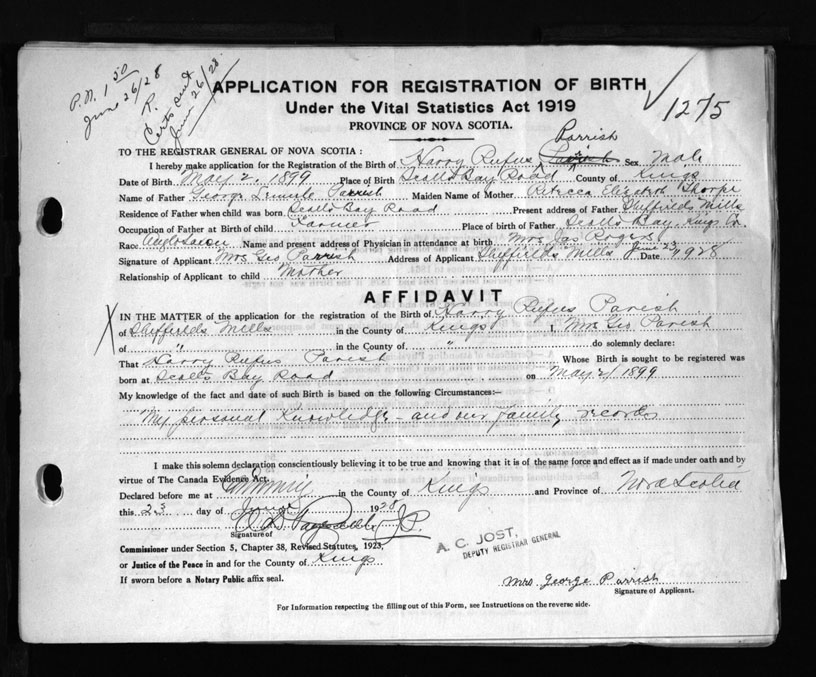 P.N. 1 50
June 26/28
R.
Certs sent
June 26/28
APPLICATION FOR REGISTRATION OF BIRTH
Under the Vital Statistics Act 1919
1275
PROVINCE OF NOVA SCOTIA.
Parrish
TO THE REGISTRAR GENERAL OF NOVA SCOTIA :
I hereby make application for the Registration of the Birth of Harry Rufus Sex Male
Date of Birth May 2, 1899 Place of Birth Scotts Bay Road County of Kings
Name of Father George Parrish Maiden Name of Mother Rebecca Elizabeth Thorpe
Residence of Father when child was born Scotts Bay Road Present address of Father Sheffields Mills
Occupation of Father at Birth of child Farmer Place of birth of Father Scotts Bay, Kings Co.
Race Anglo Saxon Name and present address of Physician in attendance at birth Mrs. Jas Rogers
Signature of Applicant Mrs Geo Parrish Address of Applicant Sheffields Mills Date June 23 1928
Relationship of Applicant to child Mother
AFFIDAVIT
IN THE MATTER of the application for the registration of the Birth of Harry Rufus Parish
of Sheffields Mills in the County of Kings I, Mrs Geo Parish
of " in the County of " do solemnly declare:
That Harry Rufus Parish Whose Birth is sought to be registered was
born at Scotts Bay Road on May 2/1899
My knowledge of the fact and date of such Birth is based on the following Circumstances:—
My personal Knowledge - and our family records
I make this solemn declaration conscientiously believing it to be true and knowing that it is of the same force and effect as if made under oath and by
virtue of The Canada Evidence Act.
Declared before me at in the County of King's and Province of Nova Scotia
this 23 day of June 1928
J.P.
Signature of
Commissioner under Section 5, Chapter 38, Revised Statutes, 1923,
A. C. JOST,
DEPUTY REGISTRAR GENERAL
or Justice of the Peace in and for the County of Kings
If sworn before a Notary Public affix seal.
Mrs George Parrish
Signature of Applicant.
For Information respecting the filling out of this Form, see Instructions on the reverse side.